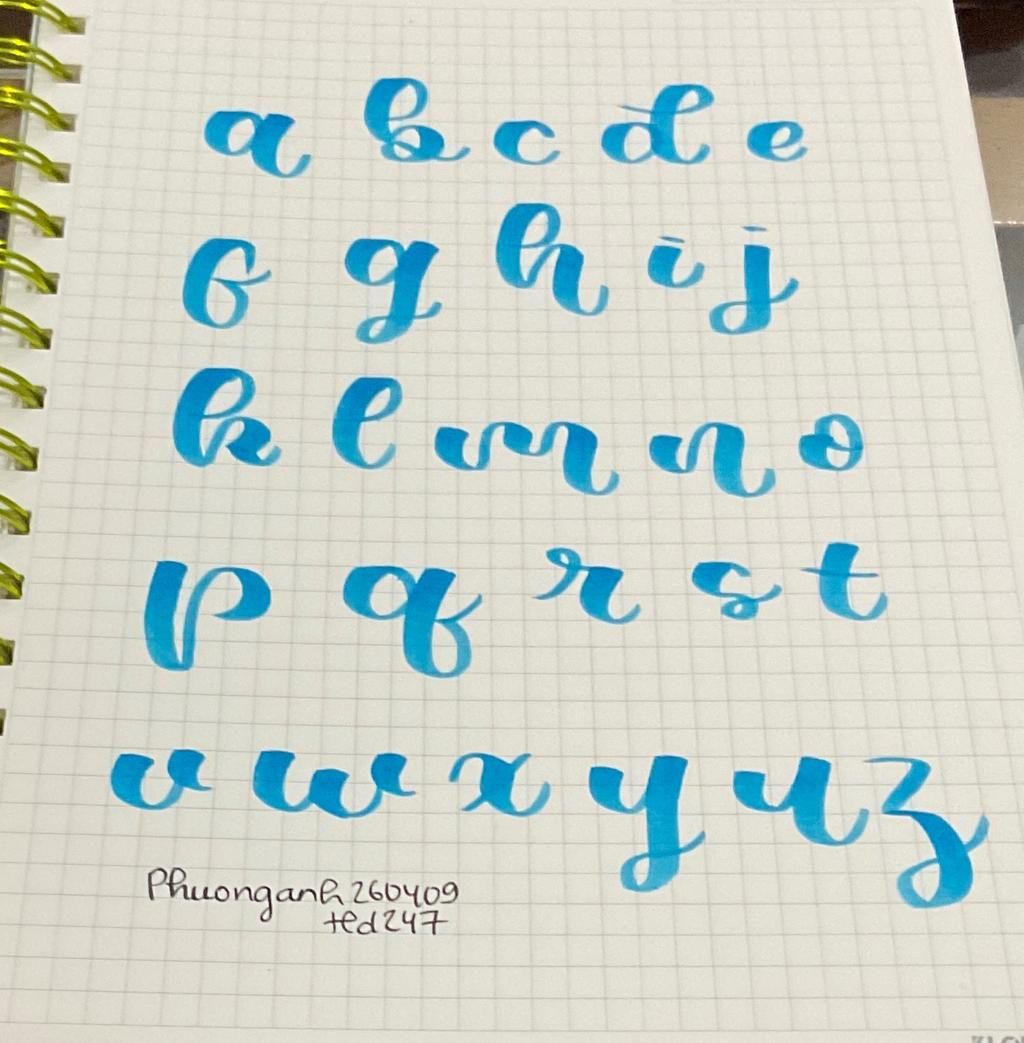 a b c d e
f g h i j
k l m n o
p q r s t
v w x y u z
Phuonganh260409
ted247